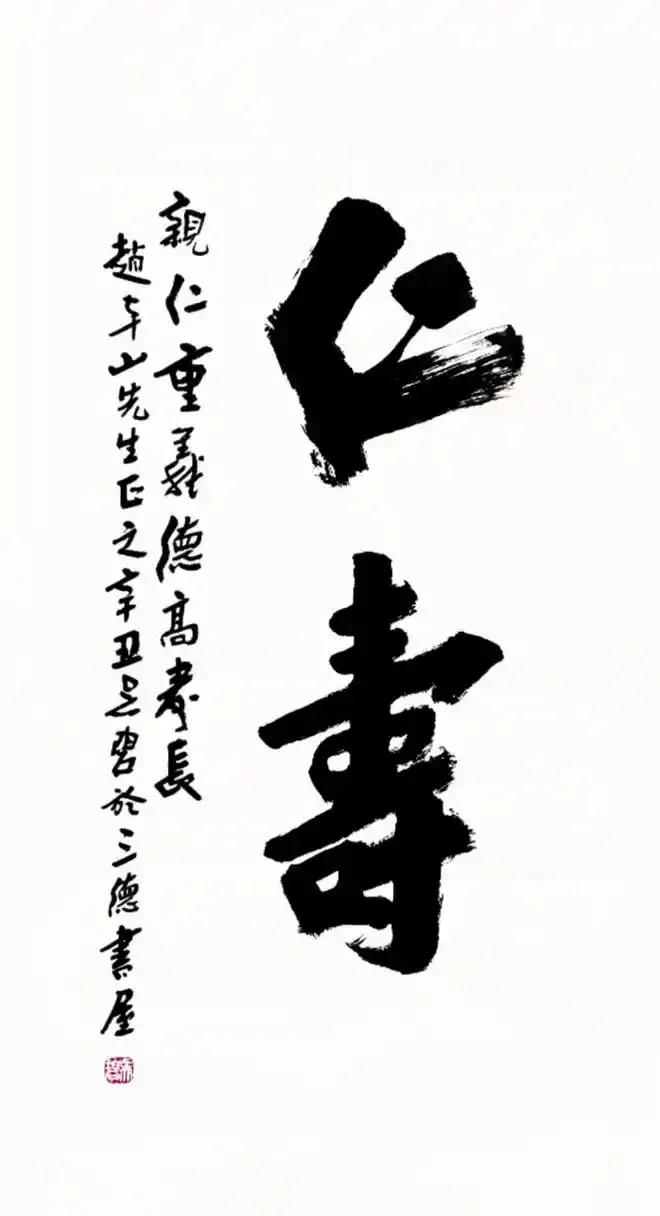 仁壽
親仁重義德高壽長
趙年山先生正之辛丑吳習於三德書屋